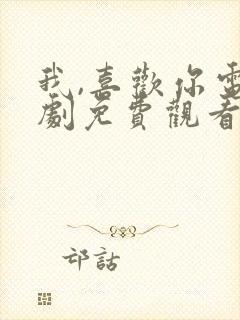 我,喜歡你電
劇免費觀看
邙話